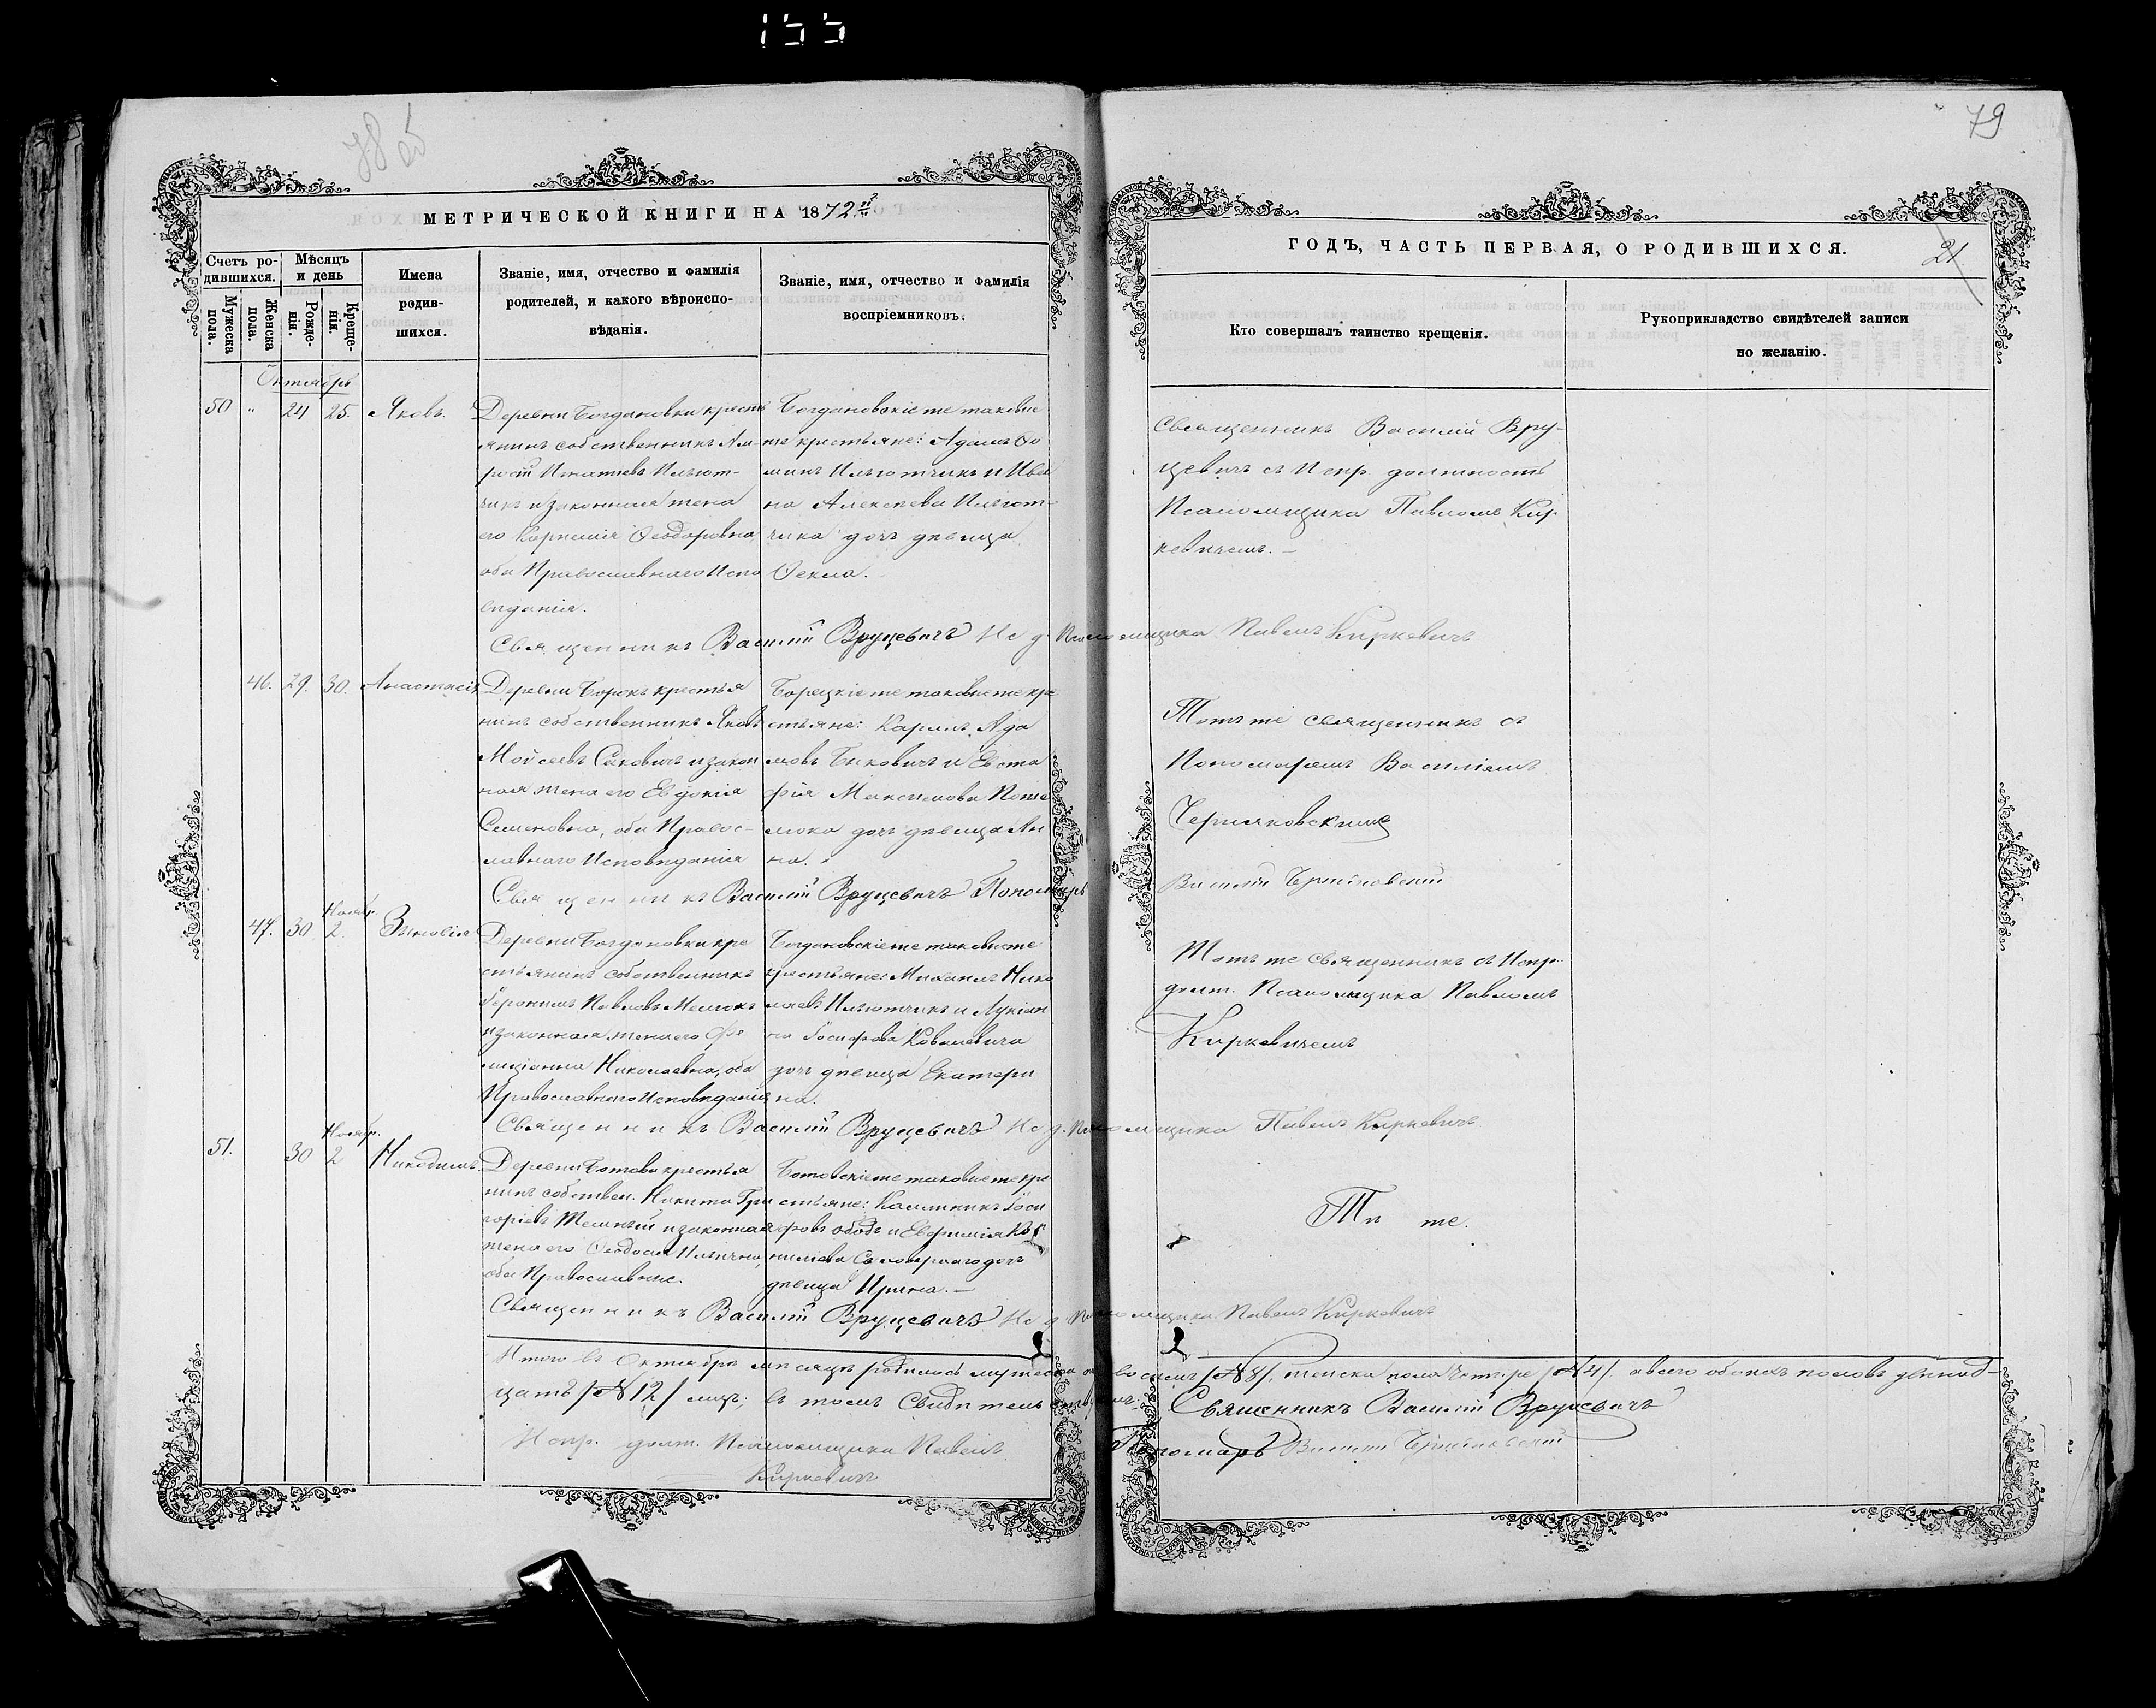 155
78 об
79
МЕТРИЧЕСКОЙ КНИГИ НА 1872й
Счетъ ро-
дившихся.
Мужеска
пола.
Женска
пола.
Мѣсяцъ
и день
Рожде-
нія.
Креще-
нія.
Имена
родив-
шихся.
Званіе, имя, отчество и фамилія
родителей, и какого вѣроиспо-
вѣданія.
Званіе, имя, отчество и фамилія
воспріемниковъ.
ГОДЪ, ЧАСТЬ ПЕРВАЯ, О РОДИВШИХСЯ.
21
Кто совершалъ таинство крещенія.
Рукоприкладство свидѣтелей записи
по желанію.
Октябрь
50 " 24 25. Яковъ.
Деревни Богдановки кресть
янинъ собственникъ Ам-
росій Игнатіевъ Ильют-
чикъ и законная жена
его Корнилія Ѳеодоровна
оба Православнаго Испо
вѣданія.
Богдановскіе же таковые
же крестьяне: Адамъ Ѳо
минъ Ильютчикъ и Ива
на Алексѣева Ильют-
чика дочь дѣвица
Ѳекла.
Священникъ Василій Вру-
цевичъ съ Испр. должность
Псаломщика Павломъ Кир-
кевичемъ.
Священникъ Василій Вруцевичъ Ис д. Псаломщика Павелъ Киркевичъ
46. 29. 30. Анастасія
Деревни Борокъ крестья
нинъ собственникъ Яковъ
Мойсеевъ Саковичъ и закон
ная жена его Евдокія
Семеновна, оба Правос-
лавнаго Исповѣданія
Борецкіе же таковые же кре
стьяне: Карпъ Ада
мовъ Быковичъ и Евста
фія Максимова
дочь дѣвица Ан
на.
Тотъ же священникъ съ
Пономаремъ Василіемъ
Черняковскимъ
Священникъ Василій Вруцевичъ Пономарь
Василій Черняковскій
47. 30 Ноябр. 2. Зиновія
Деревни Богдановки кре
стьянинъ собственникъ
Іеронимъ Павловъ Мелюкъ
и законная жена его Фе
лиціанна Николаевна, оба
Православнаго Исповѣданія
Богдановскіе же таковые же
крестьяне: Михаилъ Нико
лаевъ Ильютчикъ и Лукіан
на Іосифова Ковалевича
дочь дѣвица Екатери
на.
Тотъ же священникъ съ Испр.
долж. Псаломщика Павломъ
Киркевичемъ
Священникъ Василій Вруцевичъ Ис д. Псаломщика Павелъ Киркевичъ
51. 30 Ноябр. 2 Никодимъ.
Деревни Ботова крестья
нинъ собствен. Никита Гри
горіевъ Темный и законная
жена его Ѳеодосія Ильична,
оба Православные.
Ботовскіе же таковые же кре
стьяне: Каллиникъ Іоси
фовъ и Евфимія
дочь
дѣвица Ирина.
Тѣ же.
Священникъ Василій Вруцевичъ Ис д. Псаломщика Павелъ Киркевичъ
Итого въ Октябрѣ мѣсяцѣ родилось мужеска восемь /№8/, женска пола четыре /№4/. а всего обоихъ половъ двенад-
цать /№12/ лицъ; въ томъ Свидѣтельствуемъ: Священникъ Василій Вруцевичъ
Испр. долж. Псаломщика Павелъ
Киркевичъ
Пономарь Василій Черняковскій